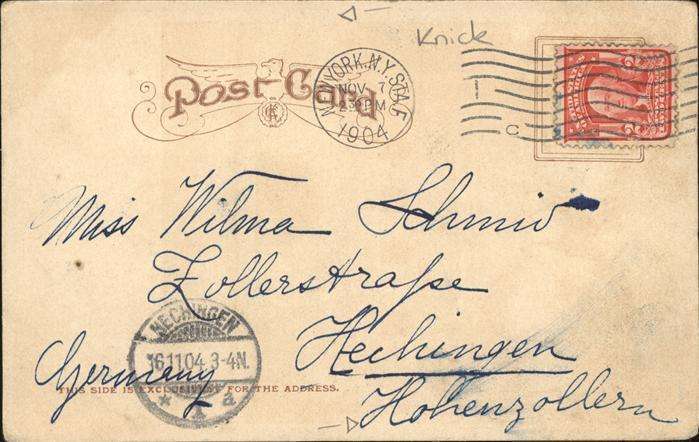 Knick
Post Card
NEW YORK, N.Y. STA.
NOV 7
230 PM
1904
Miss Wilma Schmid
Zollerstraße
Hechingen
Germany
Hohenzollern
HECHINGEN
16.11.04. 3-4N.
* a
THIS SIDE IS EXCLUSIVELY FOR THE ADDRESS.